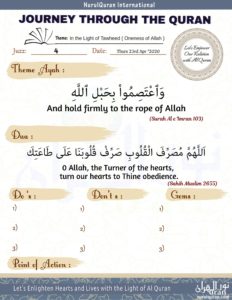 NurulQuran International
JOURNEY THROUGH THE QURAN
Theme: In the Light of Tawheed ( Oneness of Allah )
Juzz: 4 Date: Thurs 23rd Apr '2020
Let's Empower
Our Relation
with Al Quran
Theme Ayah :
وَاعْتَصِمُوا بِحَبْلِ اللَّهِ
And hold firmly to the rope of Allah
(Surah Al e Imran 103)
Dua :
اَللّٰهُمَّ مُصَرِّفَ الْقُلُوبِ صَرِّفْ قُلُوبَنَا عَلَى طَاعَتِكَ
O Allah, the Turner of the hearts,
turn our hearts to Thine obedience.
(Sahih Muslim 2655)
Do's : Don't s : Gems :
1) 1) 1)
2) 2) 2)
3) 3) 3)
Point of Action :
Let's Enlighten Hearts and Lives with the Light of Al Quran
نور القرآن